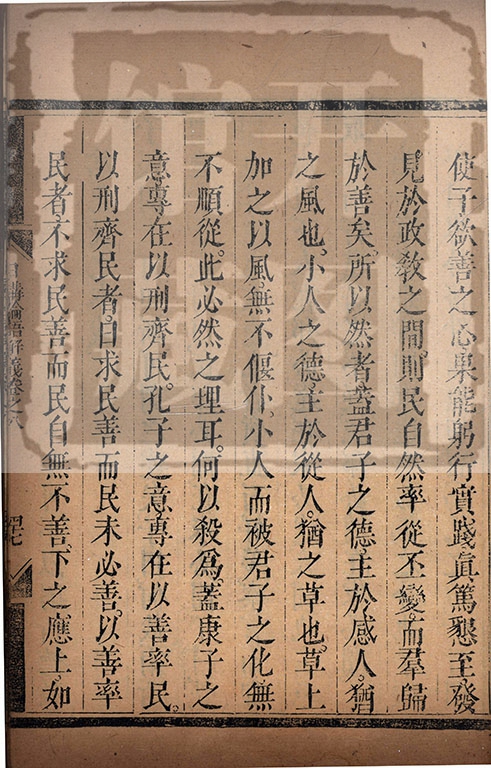 使子欲善之心果能躬行實踐眞篤懇至發
見於政敎之間則民自然率從丕變而羣歸
於善矣所以然者蓋君子之德主於感人猶
之風也小人之德主於從人猶之草也草上
加之以風無不偃仆小人而被君子之化無
不順從此必然之理耳何以殺爲蓋康子之
意專在以刑齊民孔子之意專在以善率民
以刑齊民者曰求民善而民未必善以善率
民者不求民善而民自無不善下之應上如
日講論語解義卷之八